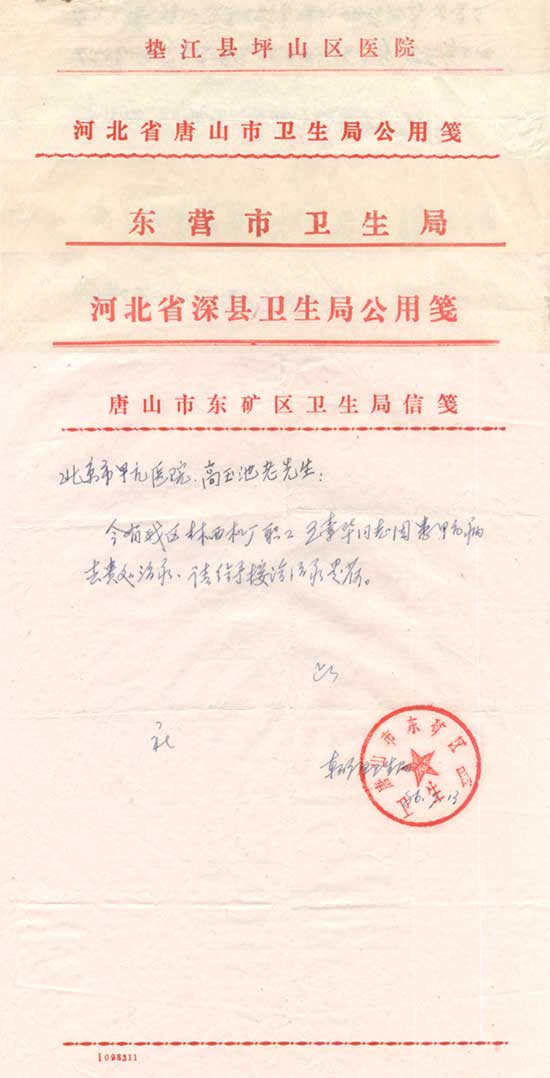 垫江县坪山区医院
河北省唐山市卫生局公用笺
东营市卫生局
河北省深县卫生局公用笺
唐山市东矿区卫生局信笺
北京市甲亢医院、高玉池老先生：
今有我区林西机厂职工王素华同志因患甲亢病
去贵处治疗、请给予接洽治疗是荷。
此
礼
东矿区卫生局
唐山市东矿区卫生局
86.5.13
1098311